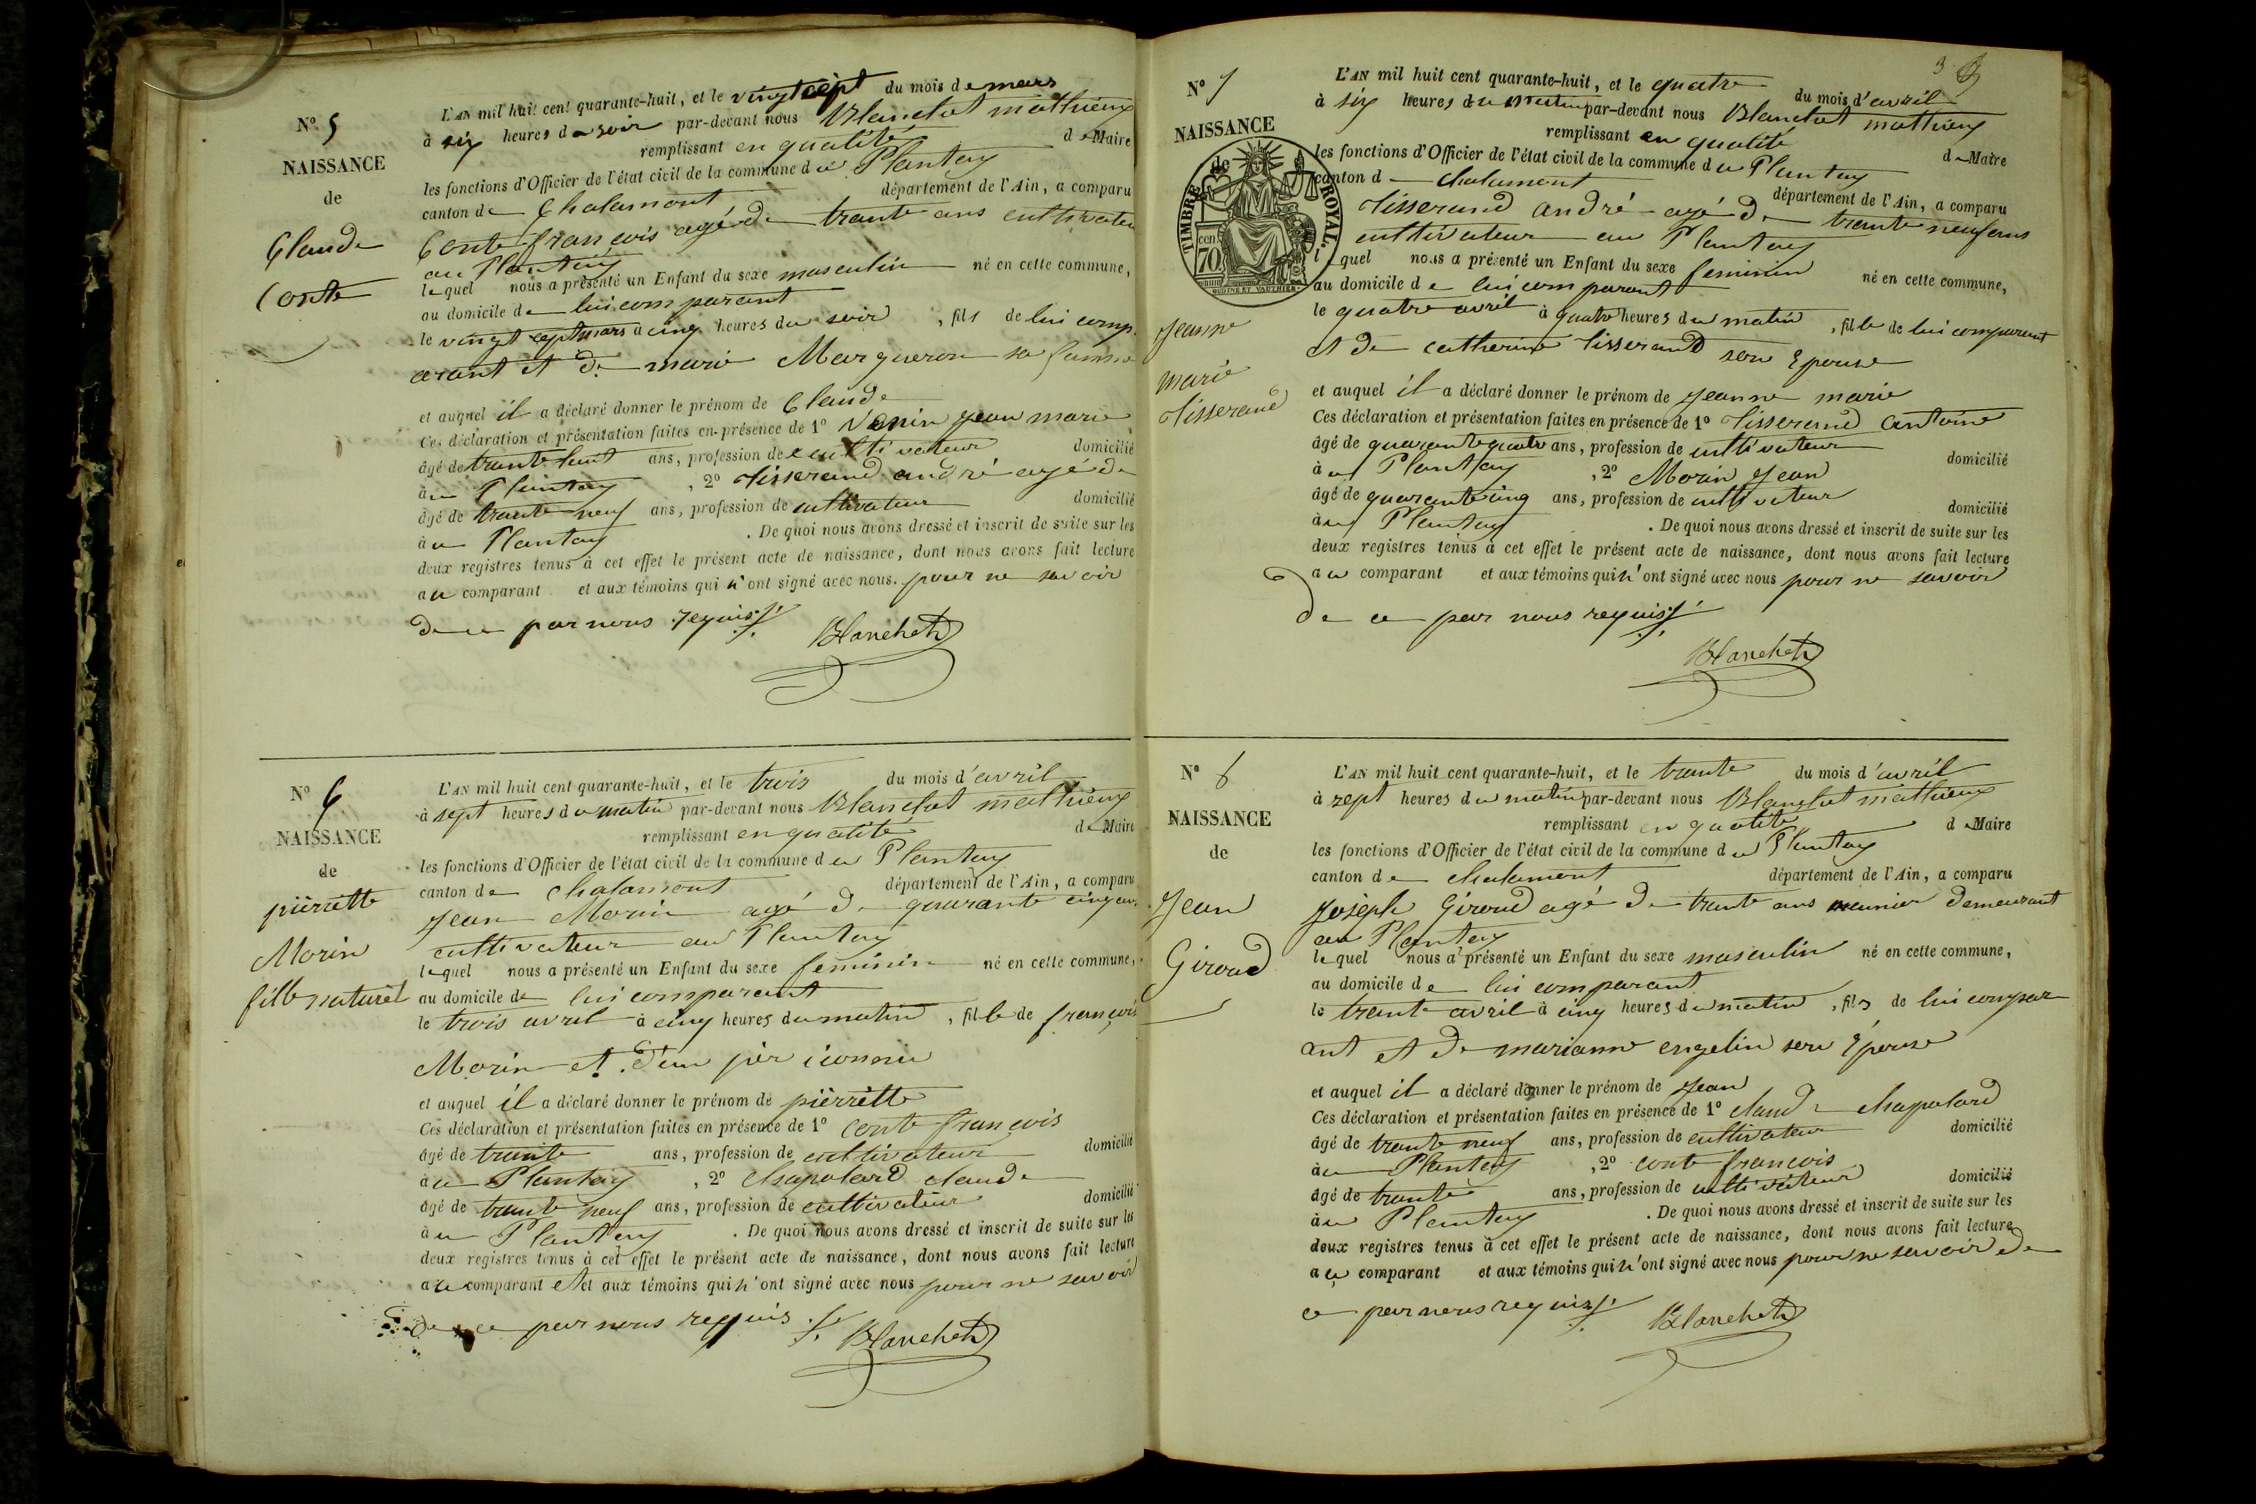 N° 5
NAISSANCE
de
Claude
Conte
L'AN mil huit cent quarante-huit, et le vingt sept du mois de mars
à six heures du soir par-devant nous Blanchet mathieux
remplissant en qualité de Maire
les fonctions d'Officier de l'état civil de la commune du Plantay
canton de Chalamont département de l'Ain, a comparu
Conte françois agé de trante ans cultivateu
au Plantay
lequel nous a présenté un Enfant du sexe masculin né en cette commune,
au domicile de lui comparant
le vingt sept mars à cinq heures du soir, fils de lui comp
arant et de marie Margueron sa femme
et auquel il a déclaré donner le prénom de Claude
Ces déclaration et présentation faites en présence de 1° Venin jean marie
âgé de trante huit ans, profession de cultivateur domicilié
à u Plantay, 2° tisserand andré agé de
âgé de trante neuf ans, profession de cultivateur domicilié
à u Plantay. De quoi nous avons dressé et inscrit de suite sur les
deux registres tenus à cet effet le présent acte de naissance, dont nous avons fait lecture
au comparant et aux témoins qui n'ont signé avec nous. pour ne savoir
de ce par nous requis
Blanchet
N° 6
NAISSANCE
de
piérrètte
Morin
fille naturèl
L'AN mil huit cent quarante-huit, et le trois du mois d'avril
à sept heures du matin par-devant nous Blanchet mathieux
remplissant en qualité de Maire
les fonctions d'Officier de l'état civil de la commune du Plantay
canton de chalamont département de l'Ain, a comparu
jean Morin agé de quarante cinq an
cultivateur au Plantay
lequel nous a présenté un Enfant du sexe feminin né en cette commune,
au domicile de lui comparant
le trois avril à cinq heures du matin, fille de françois
Morin et d'un pèr iconnu
et auquel il a déclaré donner le prénom de piérrètte
Ces déclaration et présentation faites en présence de 1° conte françois
âgé de trante ans, profession de cultivateur domicilié
à u Plantay, 2° chapolard claude
âgé de trante neuf ans, profession de cultivateur domicilié
à u Plantay. De quoi nous avons dressé et inscrit de suite sur les
deux registres tenus à cet effet le présent acte de naissance, dont nous avons fait lecture
au comparant et et aux témoins qui n'ont signé avec nous pour ne savoir
de ce par nous requis
Blanchet
3
N° 7
NAISSANCE
de
TIMBRE ROYAL
cen 70
jeanne
marie
tisserand
L'AN mil huit cent quarante-huit, et le quatre du mois d'avril
à six heures du matin par-devant nous Blanchet mathieux
remplissant en qualité de Maire
les fonctions d'Officier de l'état civil de la commune du Plantay
canton d chalamont département de l'Ain, a comparu
tisserand andré agé de trante neuf ans
cultivateur au Plantay
l quel nous a présenté un Enfant du sexe feminin né en cette commune,
au domicile de lui comparant
le quatre avril à quatre heures du matin, fille de lui comparant
et de catherine tisserand son Epouse
et auquel il a déclaré donner le prénom de jeanne marie
Ces déclaration et présentation faites en présence de 1° tisserand antoine
âgé de quarante quatre ans, profession de cultivateur domicilié
à u Plantay, 2° Morin jean
âgé de quarante cinq ans, profession de cultivateur domicilié
à u Plantay. De quoi nous avons dressé et inscrit de suite sur les
deux registres tenus à cet effet le présent acte de naissance, dont nous avons fait lecture
au comparant et aux témoins qui n'ont signé avec nous pour ne savoir
de ce par nous requis
Blanchet
N° 8
NAISSANCE
de
jean
Giroud
L'AN mil huit cent quarante-huit, et le trante du mois d'avril
à sept heures du matin par-devant nous Blanchet mathieux
remplissant en qualité de Maire
les fonctions d'Officier de l'état civil de la commune du Plantay
canton de chalamont département de l'Ain, a comparu
joseph Giroud agé de trante ans meunier demeurant
au Plantay
lequel nous a présenté un Enfant du sexe masculin né en cette commune,
au domicile de lui comparant
le trante avril à cinq heures du matin, fils de lui compar
ant et de marianne engelin son Epouse
et auquel il a déclaré donner le prénom de jean
Ces déclaration et présentation faites en présence de 1° claude chapolard
âgé de trante neuf ans, profession de cultivateur domicilié
à u Plantay, 2° conte francois
âgé de trante ans, profession de cultivateur domicilié
à u Plantay. De quoi nous avons dressé et inscrit de suite sur les
deux registres tenus à cet effet le présent acte de naissance, dont nous avons fait lecture
au comparant et aux témoins qui n'ont signé avec nous pour ne savoir de
ce par nous requis
Blanchet